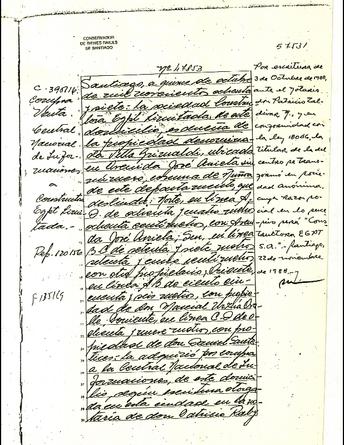 CONSERVADOR
DE BIENES RAICES
DE SANTIAGO
Nº 47853
57531
C. 398714.
Compra
Venta
Central
Nacional
de Infor-
maciones
a
Constructora
Egpt Limi-
tada.-
Ref. 120156
F 135169
Santiago, a quince de octubre
de mil novecientos ochenta
y siete: la sociedad Construc-
tora Egpt Limitada de este
domicilio, es dueña de
la propiedad denomina-
da Villa Grimaldi, ubicada
en Avenida José Arrieta sin
número, comuna de Ñuñoa
de este departamento, que
deslinda: Norte, en línea A.
D de ochenta y cuatro metros
ochenta centímetros, con Aveni-
da José Arrieta; Sur, en línea
B.C de setenta y siete metros
con otro propietario; Oriente,
en línea A.B de ciento cin-
cuenta y seis metros, con propie-
dad de don
Poniente, en línea C.D de
ochenta y nueve metros, con pro-
piedad de don Samuel
la adquirió por compra
a la Central Nacional de In-
formaciones, de este domici-
lio, según escritura otorga-
da en esta ciudad en la No-
taría de don Patricio Raby
Por escritura de
3 de Octubre de 1988,
ante el Notario
don Patricio Zal-
dívar M. y en
conformidad con
la ley 18.046, la
titular de la del
centro se trans-
formó en socie-
dad anónima,
cuya razón so-
cial en lo suce-
sivo será "Cons-
tructora EGPT
S.A." - Santiago,
22 de noviembre
de 1988.-